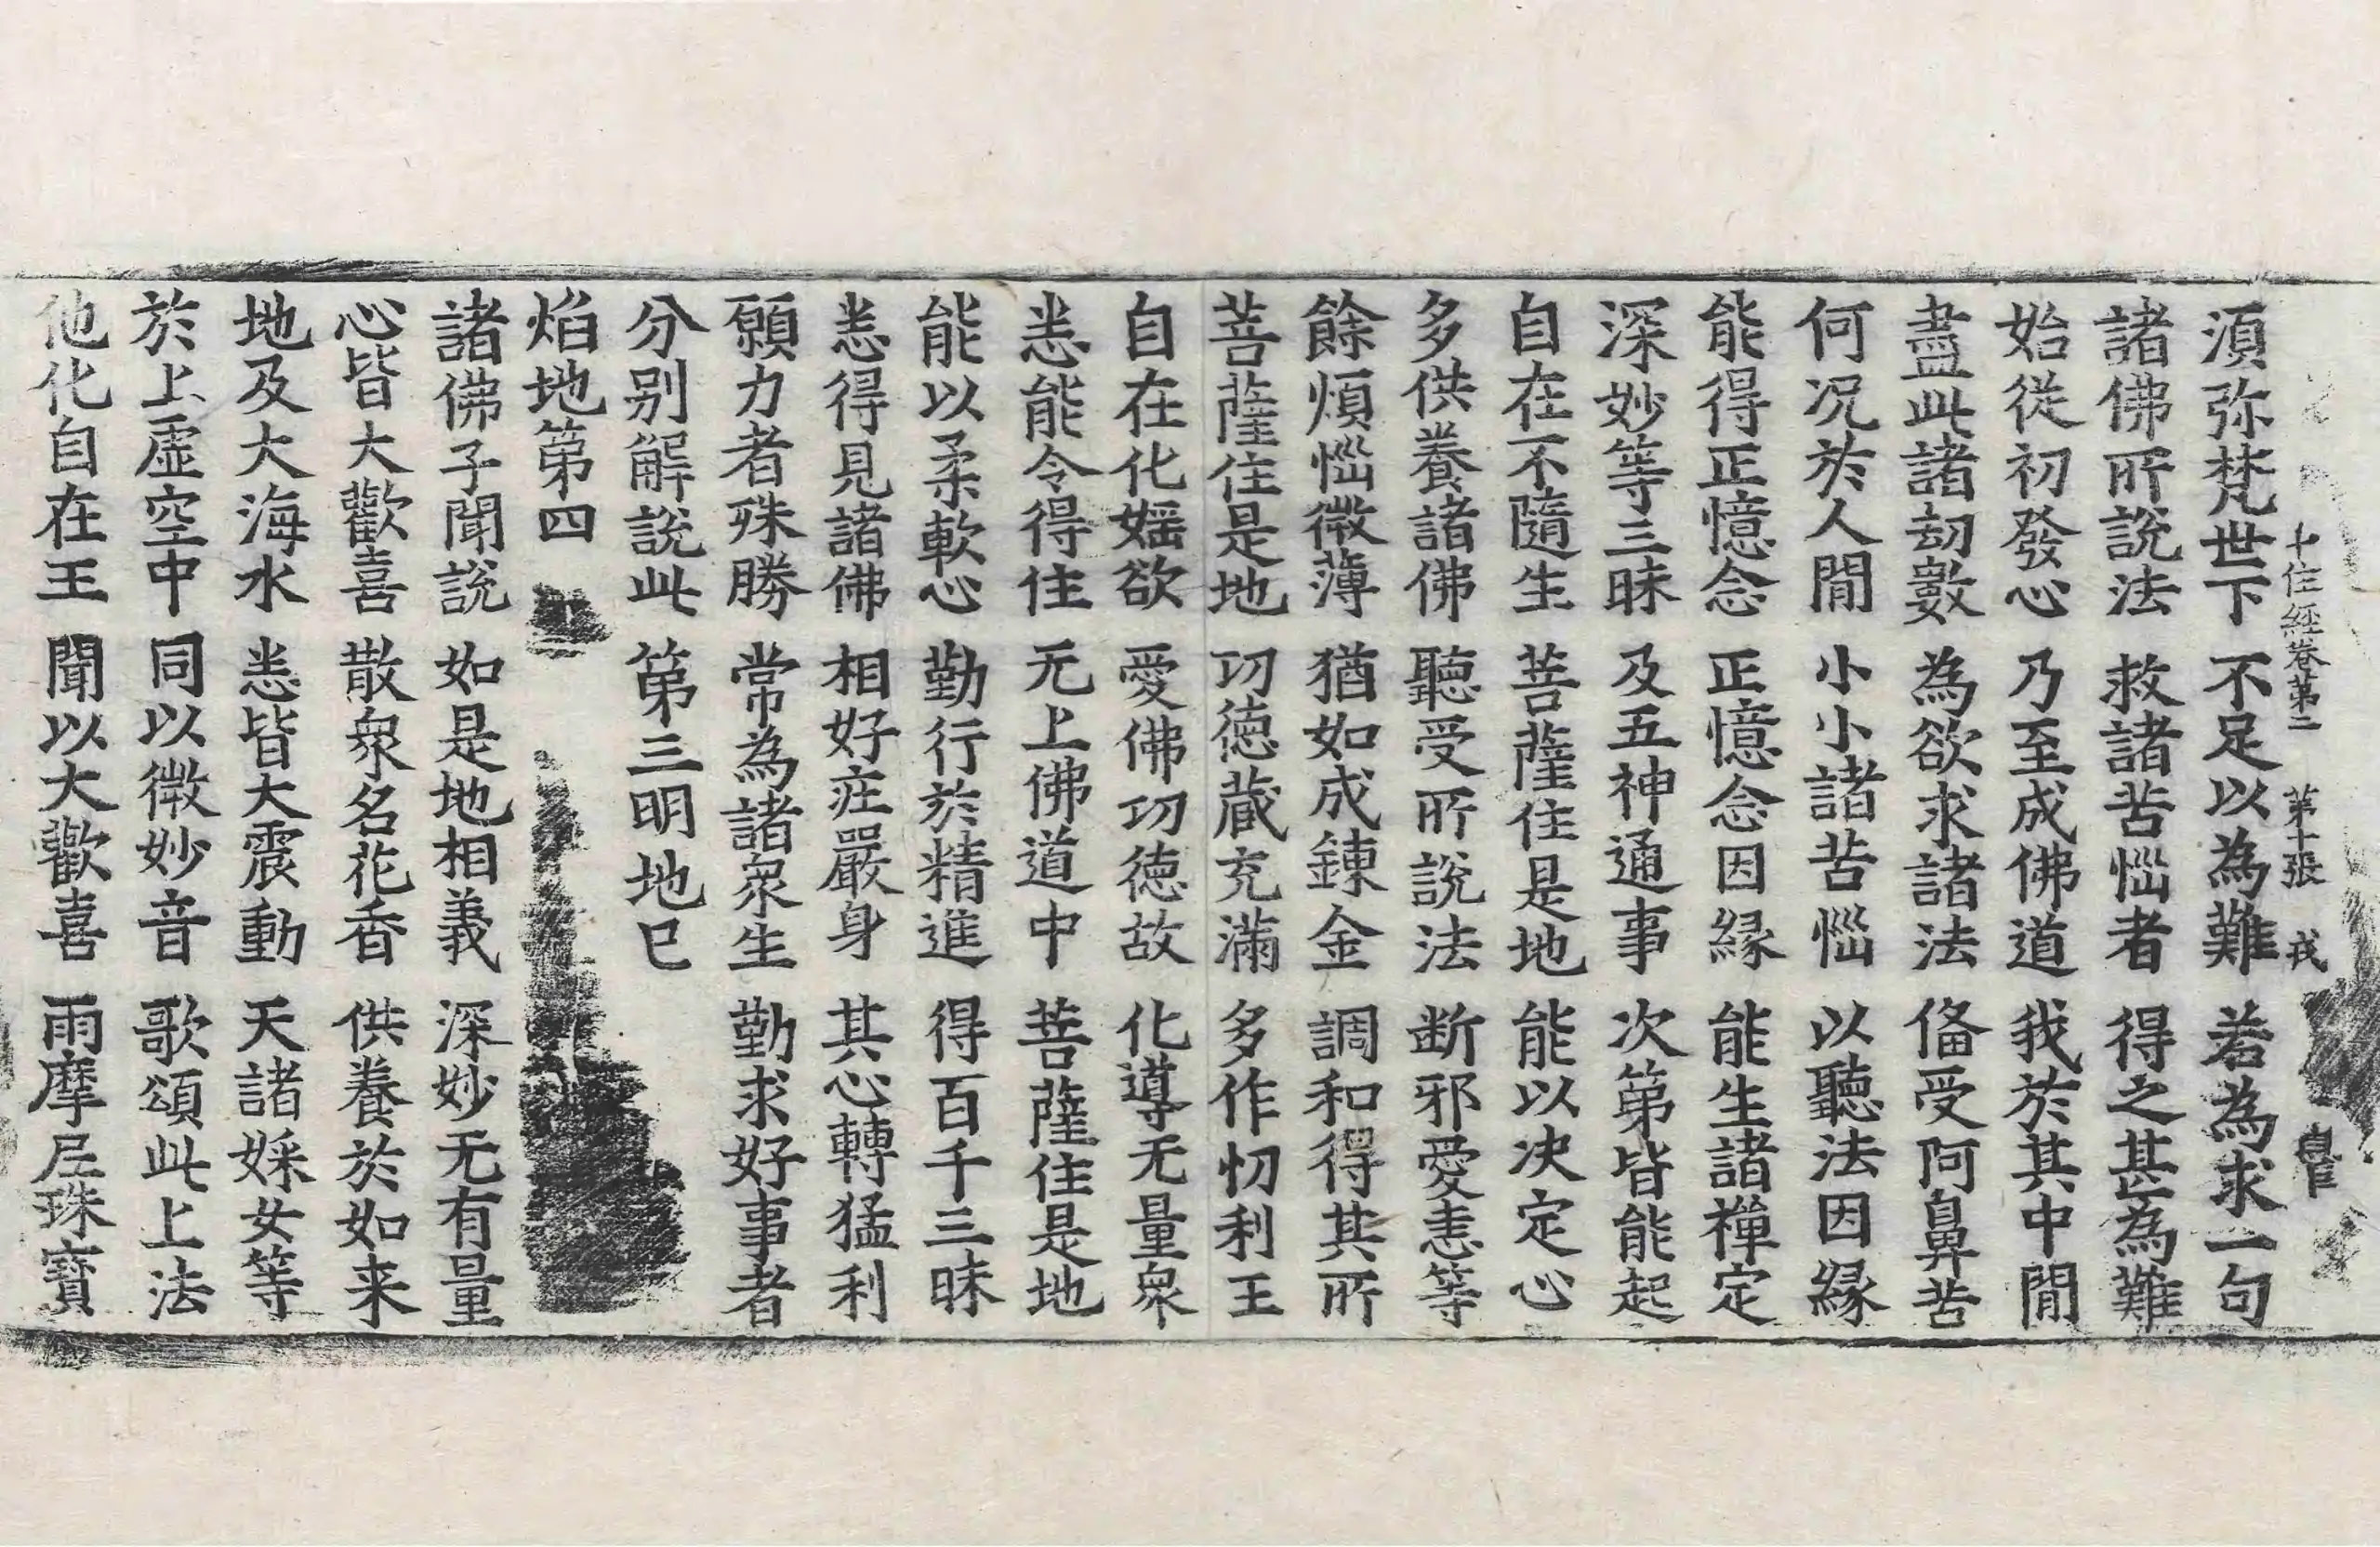 十住經卷第二 第十張 戎
須弥梵世下 不足以為難 若為求一句
諸佛所說法 救諸苦惱者 得之甚為難
始從初發心 乃至成佛道 我於其中閒
盡此諸劫數 為欲求諸法 俻受阿鼻苦
何况於人閒 小小諸苦惱 以聽法因緣
能得正憶念 正憶念因緣 能生諸禪定
深妙等三昧 及五神通事 次第皆能起
自在不隨生 菩薩住是地 能以决定心
多供養諸佛 聽受所說法 断邪愛恚等
餘煩惱微薄 猶如成鍊金 調和得其所
菩薩住是地 功徳藏充滿 多作忉利王
自在化婬欲 愛佛功徳故 化導无量衆
悉能令得住 无上佛道中 菩薩住是地
能以柔軟心 勤行於精進 得百千三昧
悉得見諸佛 相好莊嚴身 其心轉猛利
願力者殊勝 常為諸衆生 勤求好事者
分别解說此 第三明地已
焰地第四
諸佛子聞說 如是地相義 深妙无有量
心皆大歡喜 散衆名花香 供養於如来
地及大海水 悉皆大震動 天諸婇女等
於上虛空中 同以微妙音 歌頌此上法
他化自在王 聞以大歡喜 雨摩尼珠寶